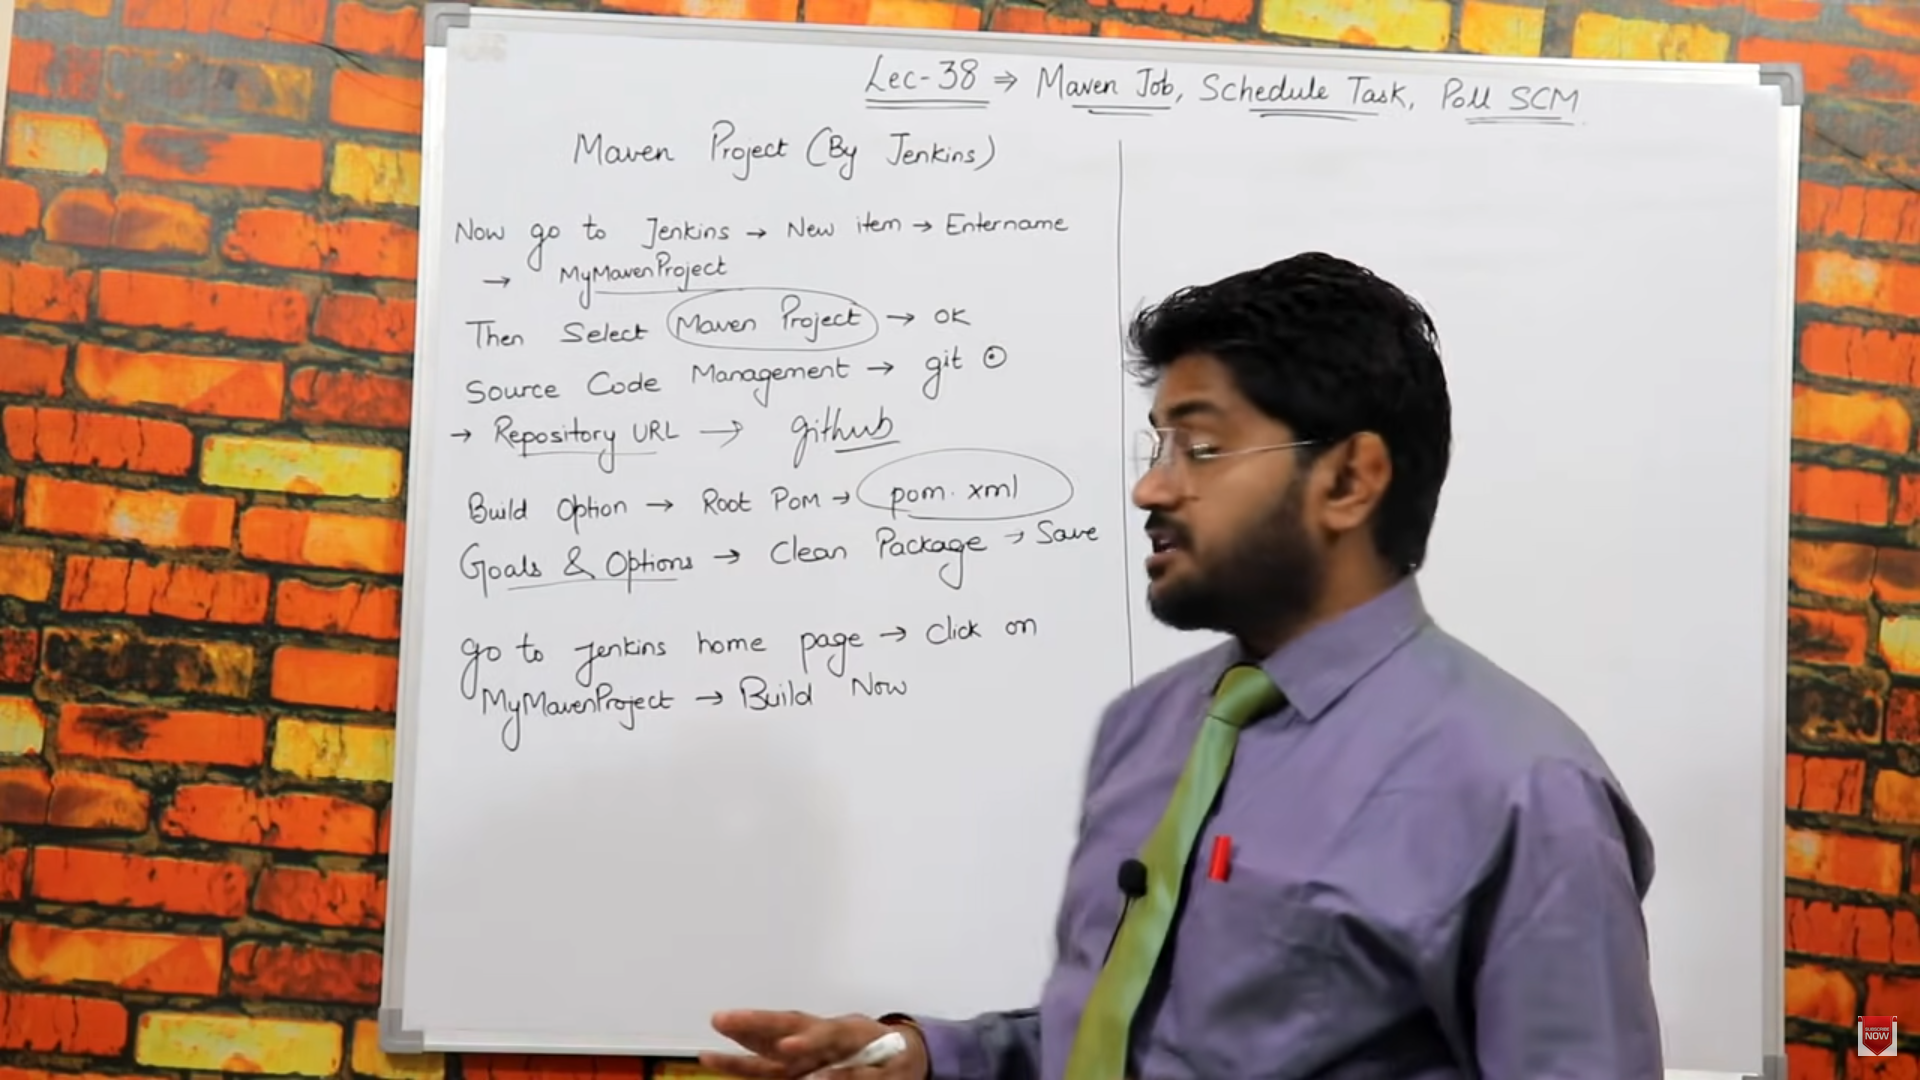 Lec-38 ⇒ Maven Job, Schedule Task, Poll SCM
Maven Project (By Jenkins)
Now go to Jenkins → New item → Entername
→ MyMavenProject
Then Select Maven Project → OK
Source Code Management → git ⊙
→ Repository URL → github
Build Option → Root POM → pom.xml
Goals & Options → Clean Package → Save
go to jenkins home page → Click on
MyMavenProject → Build Now
SUBSCRIBE
NOW